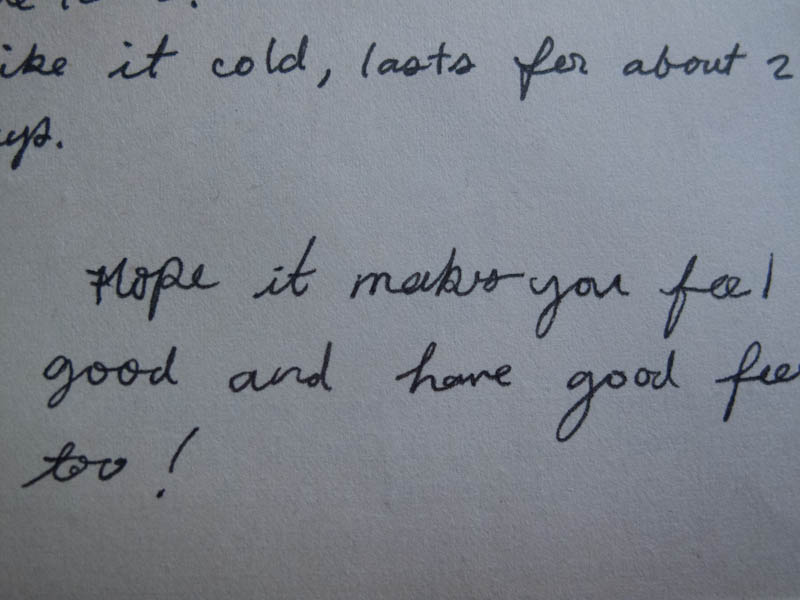 ike it cold, lasts for about 2
ays.
Hope it makes you feel
good and have good fee
too!